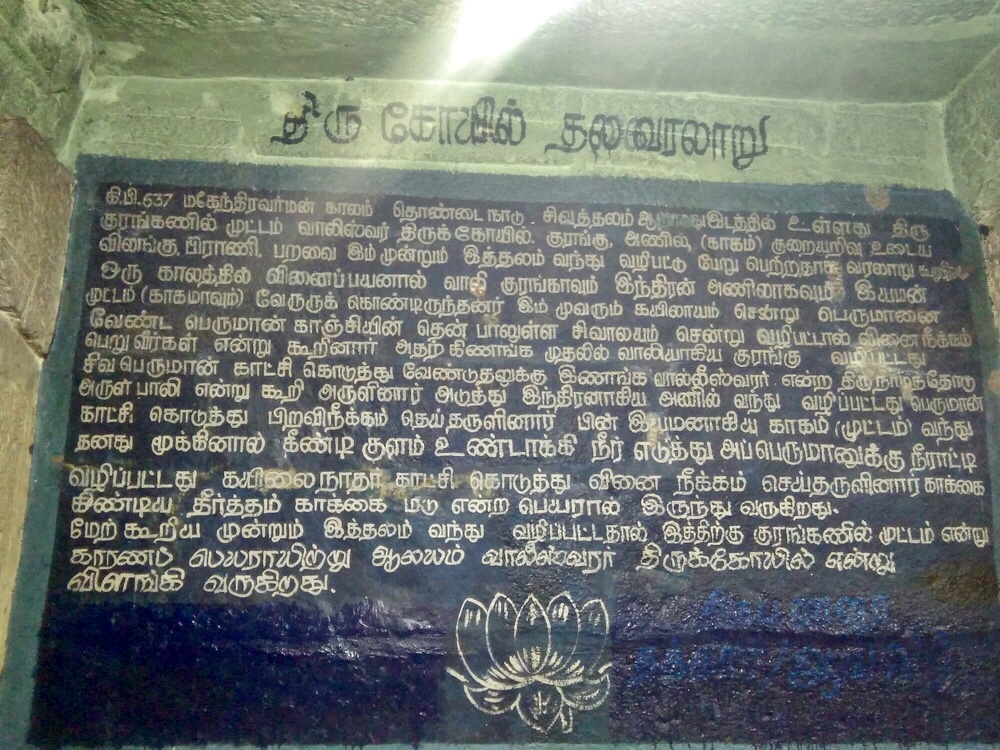 திரு கோயில் தலவரலாறு
கி.பி.637 மகேந்திரவர்மன் காலம் தொண்டை நாடு. சிவத்தலம் உள்ளது திரு
குரங்கணில் முட்டம் வாலிஸ்வர் திருக் கோயில். குரங்கு, அணில், (காகம்) குறையறிவு உடைய
விலங்கு, பிராணி, பறவை இம் முன்றும் இத்தலம் வந்து வழிபட்டு பேறு பெற்றதாக வரலாறு
ஒரு காலத்தில் வினைப் பயனால் வாலி குரங்காவும் இந்திரன் அணிலாகவும் இயமன்
முட்டம் (காகமாவும்) வேருருக் கொண்டிருந்தனர் இம் முவரும் கயிலாயம் சென்று பெருமானை
வேண்ட பெருமான் காஞ்சியின் தென் பாலுள்ள சிவாலயம் சென்று வழிபட்டால் வினை நீக்கம்
பெறுவீர்கள் என்று கூறினார் அதற் கிணங்க முதலில் வாலியாகிய குரங்கு வழிப்பட்டது
சிவ பெருமான் காட்சி கொடுத்து வேண்டுதலுக்கு இணாங்க வாலலீஸ்வரர் என்ற திருநாமத்தோடு
அருள் பாலி என்று கூறி அருளினார் அடுத்து இந்திரனாகிய அணில் வந்து வழிப்பட்டது பெருமான்
காட்சி கொடுத்து பிறவிநீக்கம் தெய்தருளினார் பின் இயமனாகிய காகம் (முட்டம்) வந்து
தனது மூக்கினால் கீண்டி குளம் உண்டாக்கி நீர் எடுத்து அப்பெருமானுக்கு நீராட்டி
வழிப்பட்டது கயிலை நாதர் காட்சி கொடுத்து வினை நீக்கம் செய்தருளினார் காக்கை
கிண்டிய தீர்த்தம் காக்கை மடு என்ற பெயரால் இருந்து வருகிறது.
மேற் கூறிய முன்றும் இத்தலம் வந்து வழிப்பட்டதால் இத்திற்கு குரங்கணில் முட்டம் என்று
காரணப் பெயராயிற்று ஆலயம் வாலீஸ்வரர் திருக்கோயில் என்று
விளங்கி வருகிறது.